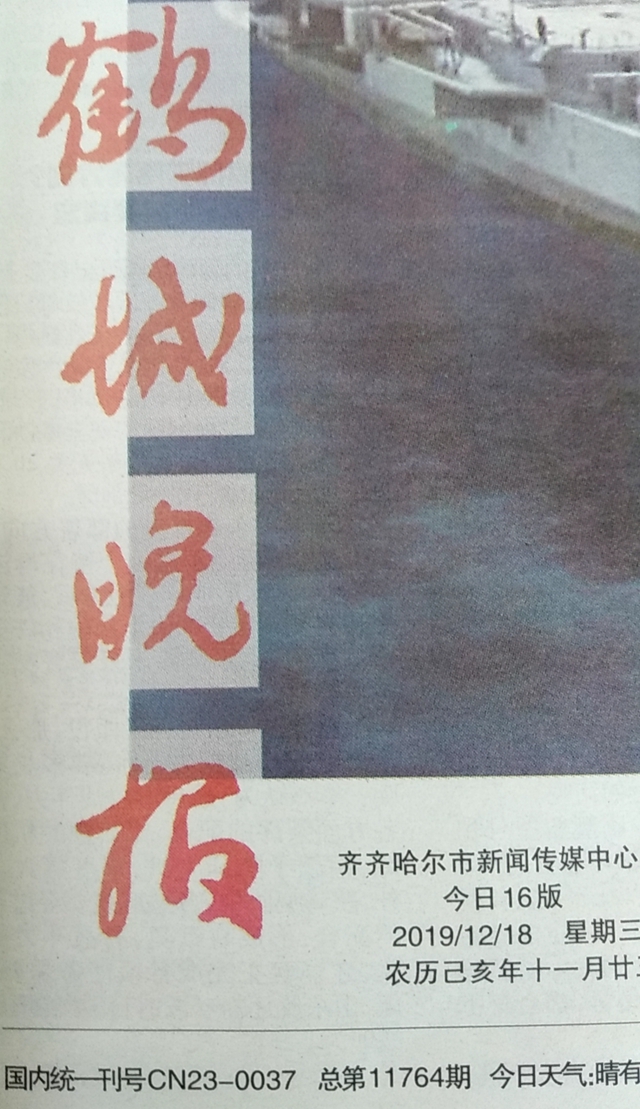 鹤城晚报
齐齐哈尔市新闻传媒中心
今日16版
2019/12/18 星期三
农历己亥年十一月廿
国内统一刊号CN23-0037 总第11764期 今日天气:晴有